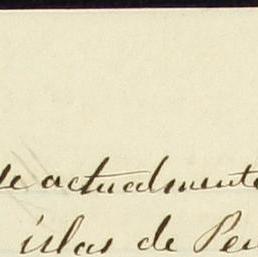 de actualmente
islas de